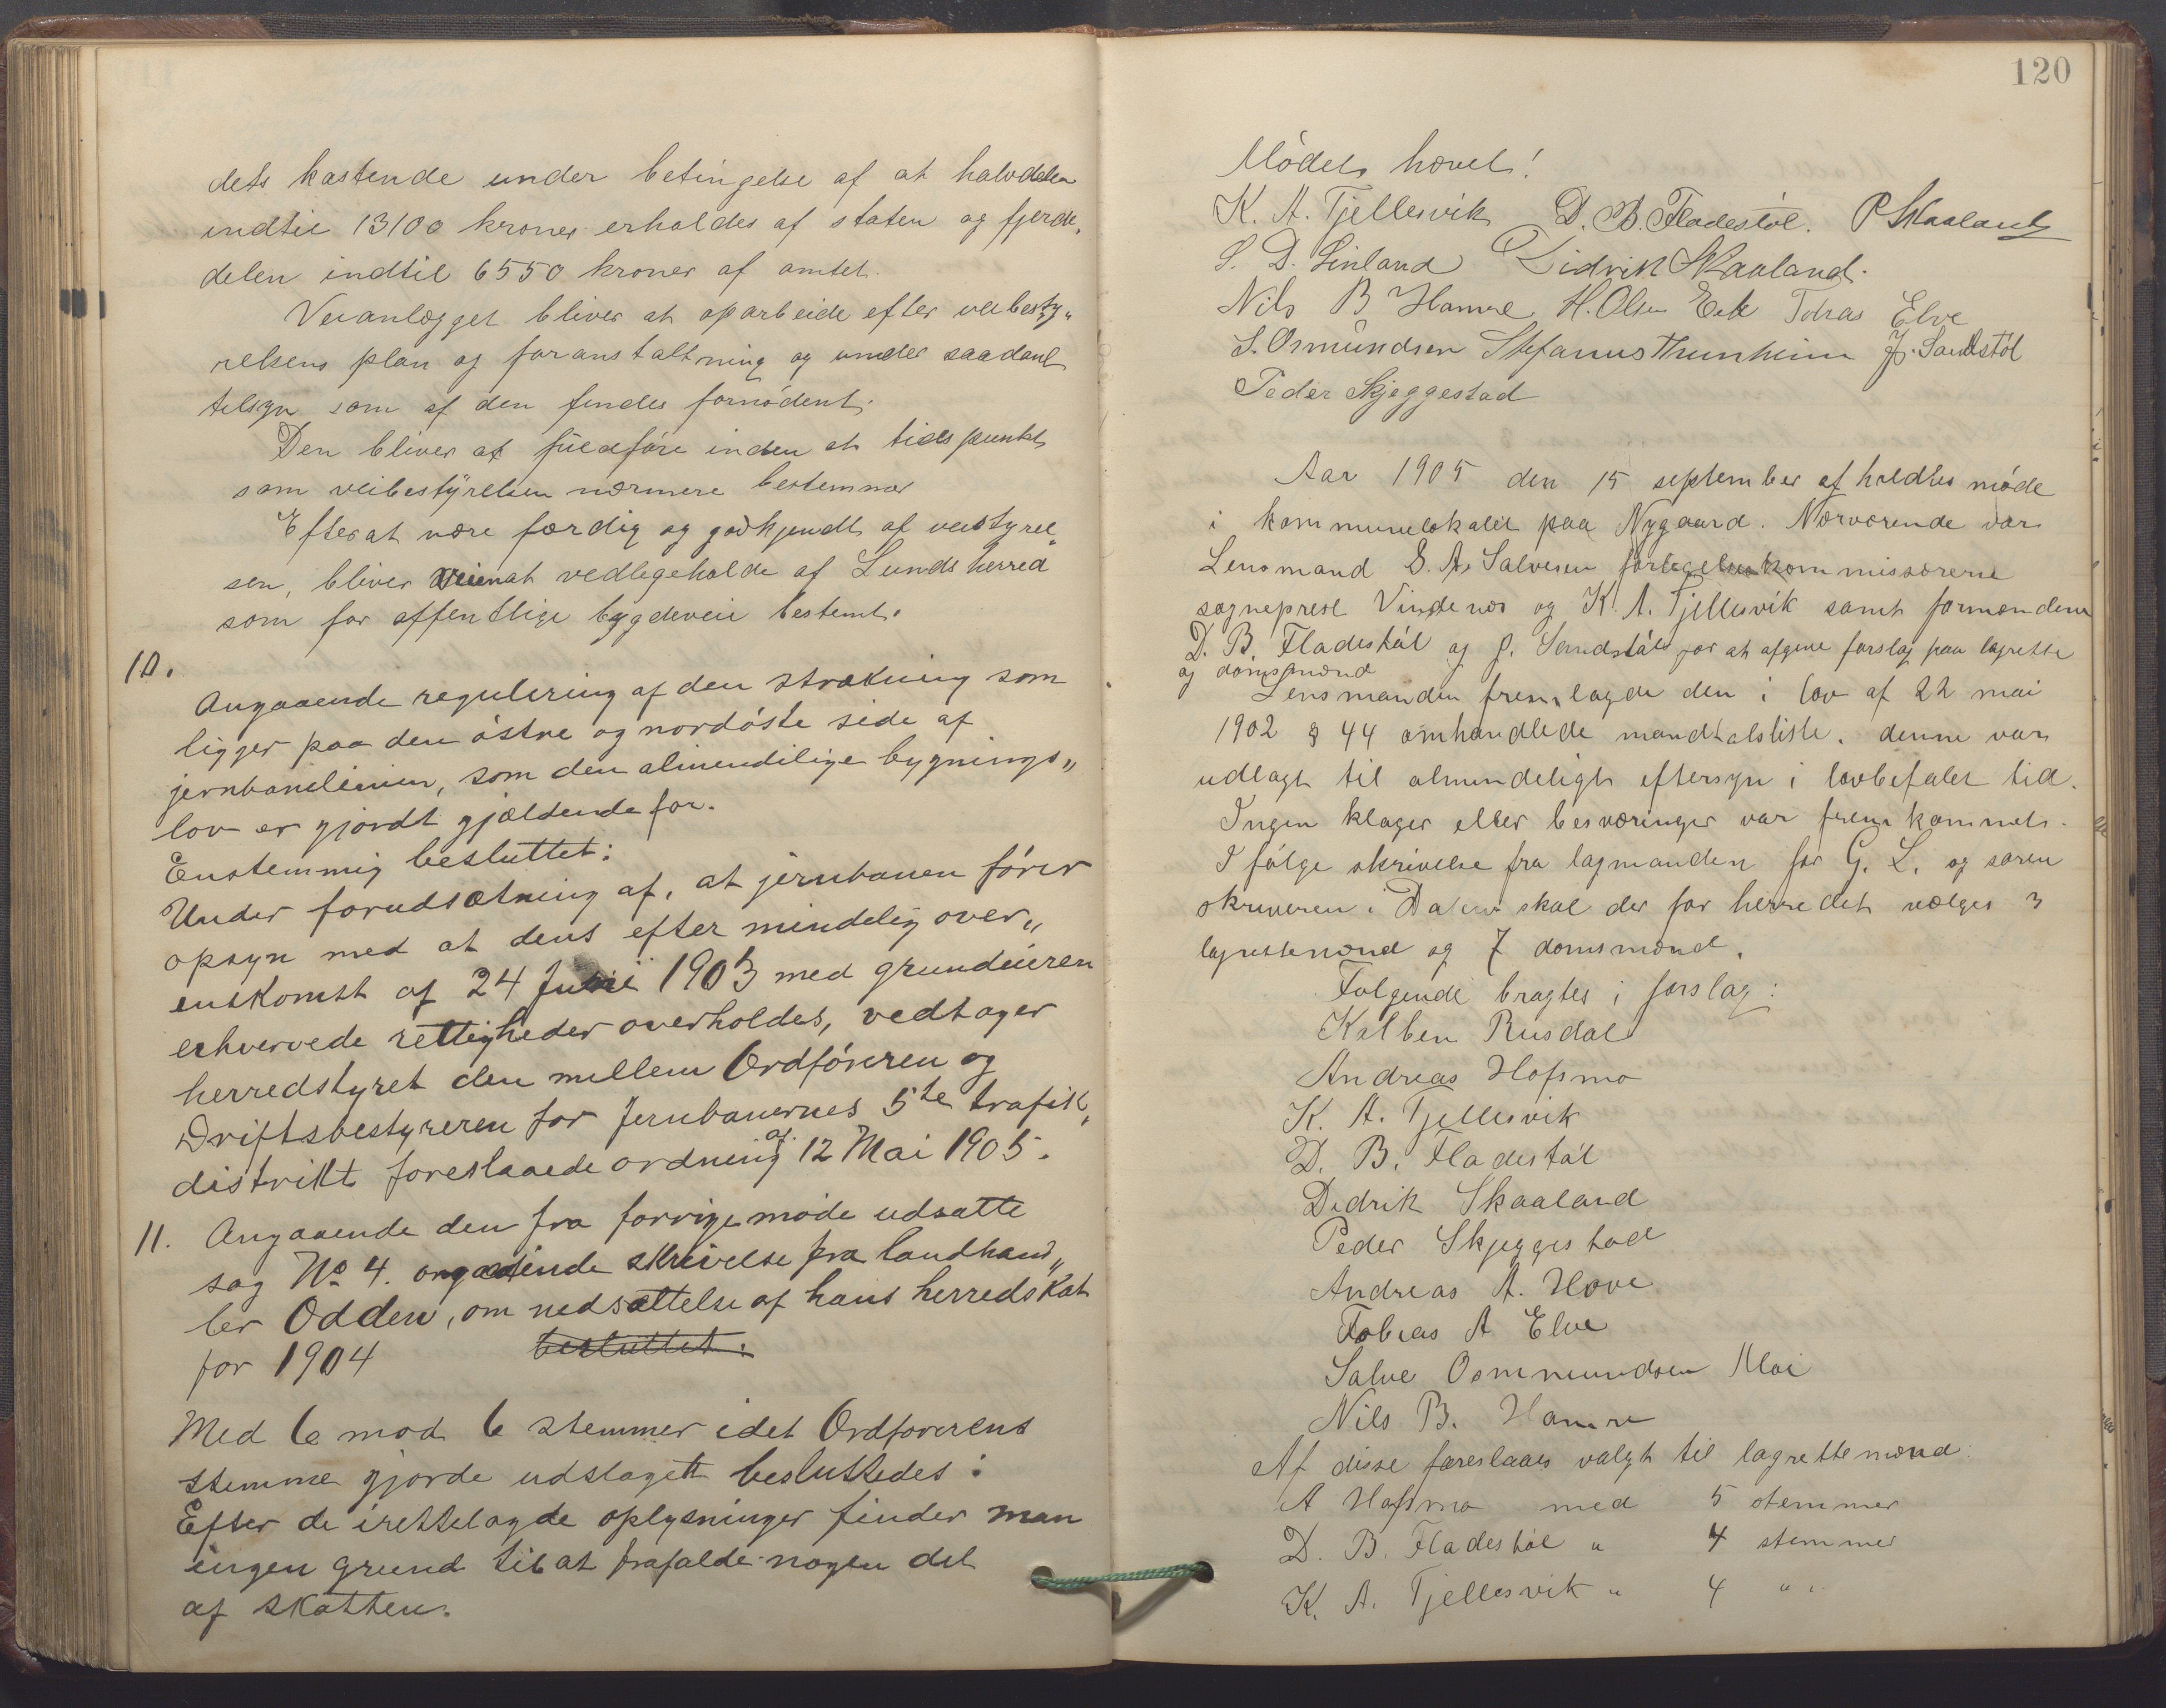 dets kostende under betingelse af at halvdelen
indtil 13100 kroner erholdes af staten og fjerde„
delen indtil 6550 kroner af amtet.
Veianlægget bliver at oparbeide efter veibesty„
relsens plan og foranstaltning og under saadant
tilsyn som af den findes fornødent.
Den bliver at fuldføre inden et tidspunkt
som veibestyrelsen nærmere bestemmer
Efter at være færdig og godkjendt af veistyrel„
sen, bliver Veien at vedlegeholde af Lunds herred
som for offentlige bygdeveie bestemt.
10.
Angaaende regulering af den strækning som
ligger paa den østre og nordøste side af
jernbanelinien, som den almendilige bygnings„
lov er gjordt gjældende for.
Enstemmig besluttet:
Under forudsætning af, at jernbanen fører
opsyn med at dens efter mindelig over„
enskomst af 24 Juni 1903 med grundeieren
erhvervede rettigheder overholdes, vedtager
herredstyret den mellem Ordføreren og
Driftsbestyreren for Jernbanernes 5te trafik„
distrikt foreslaaede ordning af 12 Mai 1905.
11. Angaaende den fra forrige møde udsatte
sag No 4. angaaende skrivelse fra landhand„
ler Odden, om nedsættelse af hans herredskat
for 1904 besluttet:
Med 6 mod 6 stemmer idet Ordførerens
stemme gjorde udslaget besluttedes:
Efter de irettelagde oplysninger finder man
ingen grund til at frafalde nogen del
af skatten.
120
Mødet hævet!
K. A. Tjellesvik D. B. Fladestøl. P Skaaland
S. D. Linland Didrik Skaaland.
Nils B Hamre H. Olsen Eek Tobias Elve
S. Osmundsen Stefanus Thunheim J. Sandstøl
Peder Skjeggestad
Aar 1905 den 15 september afholdtes møde
i kommunelokalet paa Nygaard. Nærværende var
Lensmand S. A. Salvesen forlegelseskommissærerne
sogneprest Vindenes og K. A. Tjellesvik samt formændene
D. B. Fladestøl og J. Sandstøl for at afgive forslag paa lagrette
og domsmænd
Lensmanden fremlagde den i lov af 22 mai
1902 § 44 omhandlede mandtalsliste. denne var
udlagt til almindeligt eftersyn i lovbefalet tid.
Ingen klager eller besværinger var fremkommet.
I følge skrivelse fra lagmanden for G. L. og soren
skriveren i Dalene skal der for herredet vælges 3
lagrettemænd og 7 domsmænd.
Følgende bragtes i forslag:
Kolben Rusdal
Andreas Hofsmo
K. A. Tjellesvik
D. B. Fladestøl
Didrik Skaaland
Peder Skjeggestad
Andreas A. Hove
Tobias A Elve
Salve Osmmundsen Moi
Nils B. Hamre
Af disse foreslaaes valgt til lagrettemænd:
A Hofsmo med 5 stemmer
D. B. Fladestøl " 4 stemmer
K. A. Tjellesvik " 4 " "